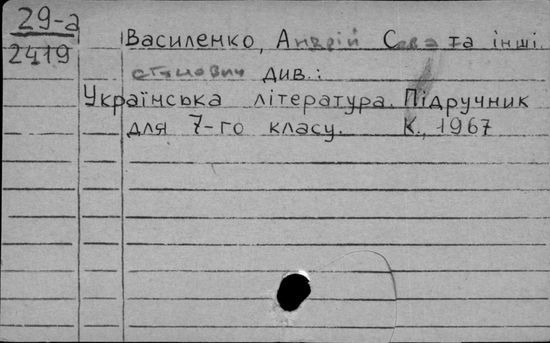 29-а
2419
Василенко, Андрій Сева та інші.
стянович див.:
Українська література. Підручник
для 7-го класу. К., 1967